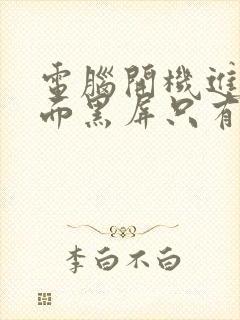 電腦開機進
而黑屏只有
李白不白